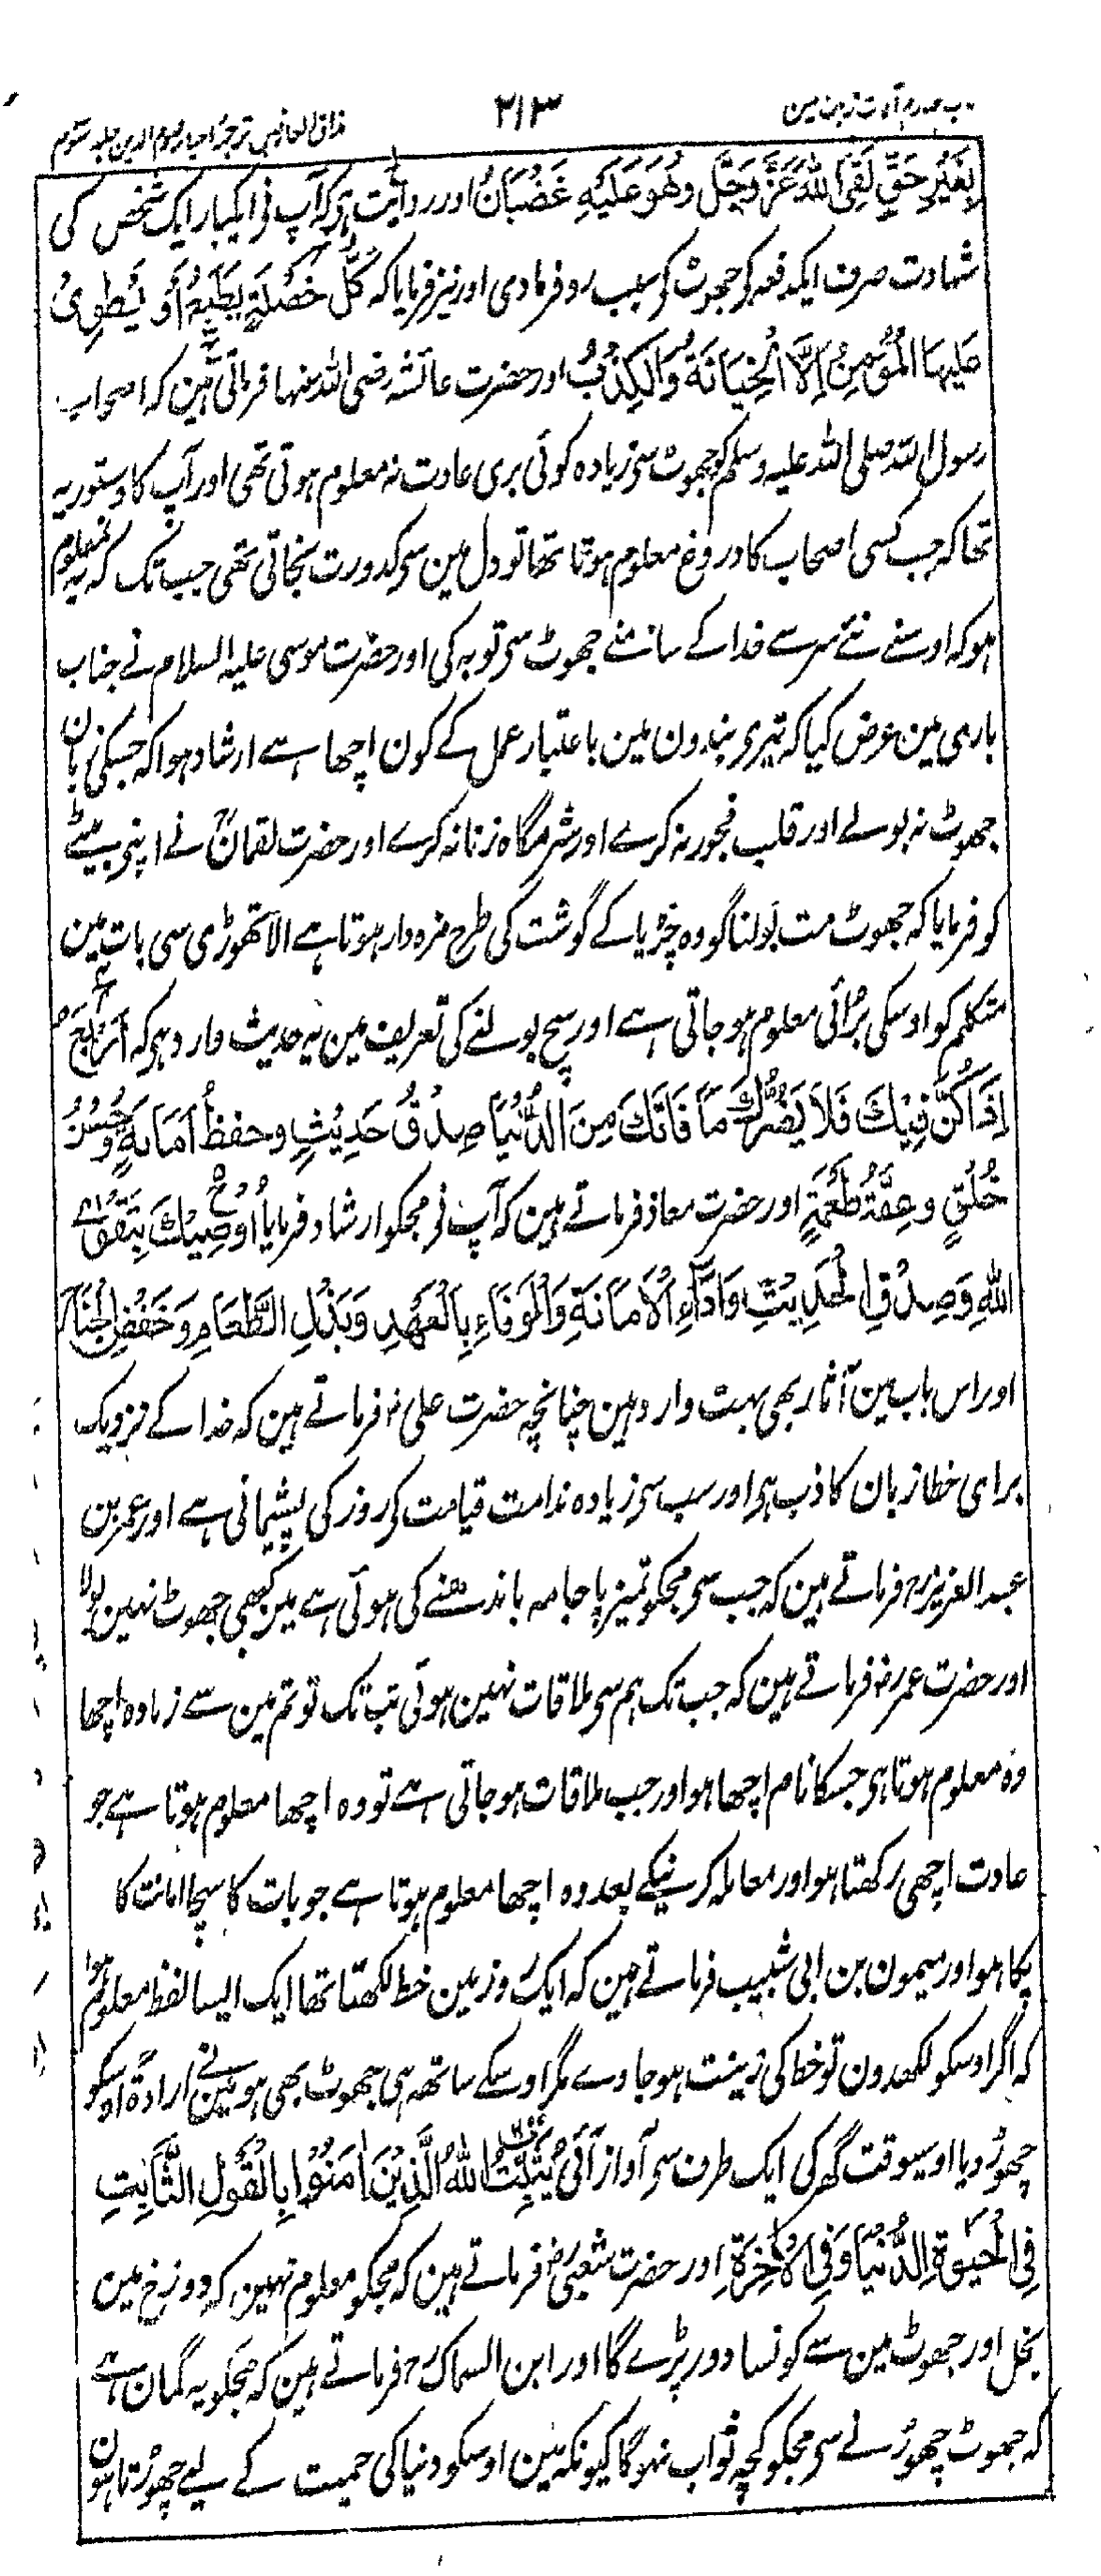 ۲۱۳
مذاق العارفین ترجمۂ احیاء علوم الدین جلد سوم
بِغَيْرِ حَقٍّ لَقِيَ اللهَ عَزَّ وَجَلَّ وَهُوَ عَلَيْهِ غَضْبَانُ اور روایت ہی کہ آپ نی ایکبار ایک شخص کی
شہادت صرف ایکدفعہ کی جھوٹ کی سبب رد فرمادی اور نیز فرمایا کہ كُلُّ خَصْلَةٍ يَطْبَعُ أَوْ يُطْوٰى
عَلَيْهَا الْمُؤْمِنُ إِلَّا الْخِيَانَةُ وَالْكِذْبُ اور حضرت عائشہ رضی اللہ عنہا فرماتی ہین کہ اصحاب
رسول اللہ صلی اللہ علیہ وسلم کو جھوٹ سی زیادہ کوئی بری عادت نہ معلوم ہوتی تھی اور آپ کا دستور یہ
تھا کہ جب کسی اصحاب کا دروغ معلوم ہوتا تھا تو دل مین سی کدورت نجاتی تھی جب تک کہ یہ نمعلوم
ہو کہ اوسنے نئے سرے سے خدا کے سامنے جھوٹ سی توبہ کی اور حضرت موسی علیہ السلام نے جناب
باری مین عرض کیا کہ تیری بندون مین باعتبار عمل کے کون اچھا ہے ارشاد ہوا کہ جسکی زبان
جھوٹ نہ بولے اور قلب فجور نہ کرے اور شرمگاہ زنا نہ کرے اور حضرت لقمانؑ نے اپنی بیٹے
کو فرمایا کہ جھوٹ مت بولنا گو وہ چڑیا کے گوشت کی طرح مزہ دار ہوتا ہے الا تھوڑی سی بات مین
متکلم کو اوسکی برائی معلوم ہو جاتی ہے اور سچ بولنے کی تعریف مین یہ حدیث وارد ہی کہ أَرْبَعٌ
إِذَا كُنَّ فِيْكَ فَلَا يَضُرُّكَ مَا فَاتَكَ مِنَ الدُّنْيَا صِدْقُ حَدِيْثٍ وحفظُ أَمَانَةٍ وَحُسْنُ
خُلُقٍ وعِفَّةُ طُعْمَةٍ اور حضرت معاذ فرماتے ہین کہ آپ نی مجکو ارشاد فرمایا أُوْصِيْكَ بِتَقْوَى
اللهِ وَصِدْقِ الْحَدِيْثِ وَأَدَاءِ الْأَمَانَةِ وَالْوَفَاءِ بِالْعَهْدِ وَبَذْلِ الطَّعَامِ وَخَفْضِ الْجَنَاحِ
اور اس باب مین آثار بھی بہت وارد ہین چنانچہ حضرت علی رض فرماتے ہین کہ خدا کے نزدیک
بڑی خطا زبان کاذب ہی اور سب سی زیادہ ندامت قیامت کی روز کی پشیمانی ہے اور عمر بن
عبد العزیز رح فرماتے ہین کہ جب سی مجکو تمیز پاجامہ باندھنے کی ہوئی ہے مین کبھی جھوٹ نہین بولا
اور حضرت عمر رض فرماتے ہین کہ جب تک ہم سی ملاقات نہین ہوئی تب تک تو تم مین سے زیادہ اچھا
وہ معلوم ہوتا ہی جسکا نام اچھا ہو اور جب ملاقات ہو جاتی ہے تو وہ اچھا معلوم ہوتا ہے جو
عادت اچھی رکھتا ہو اور معاملہ کرنیکے بعد وہ اچھا معلوم ہوتا ہے جو بات کا سچا امانت کا
پکا ہو اور میمون بن ابی شبیب فرماتے ہین کہ ایک روز مین خط لکھتا تھا ایک ایسا لفظ معلوم ہوا
کہ اگر اوسکو لکھدون تو خط کی زینت ہو جاوے مگر اوسکے ساتھہ ہی جھوٹ بھی ہو مینے ارادۃً اوسکو
چھوڑ دیا اوسیوقت گھر کی ایک طرف سی آواز آئی يُثَبِّتُ اللهُ الَّذِيْنَ اٰمَنُوْا بِالْقَوْلِ الثَّابِتِ
فِي الْحَيٰوةِ الدُّنْيَا وَفِي الْاٰخِرَةِ اور حضرت شعبی رض فرماتے ہین کہ مجکو معلوم نہین کہ دوزخ مین
بخل اور جھوٹ مین سے کونسا دور پڑے گا اور ابن السماک رح فرماتے ہین کہ مجکو یہ گمان ہے
کہ جھوٹ چھوڑنے سی مجکو کچھ ثواب نہوگا کیونکہ مین اوسکو دنیا کی حمیت کے لیے چھوڑتا ہون